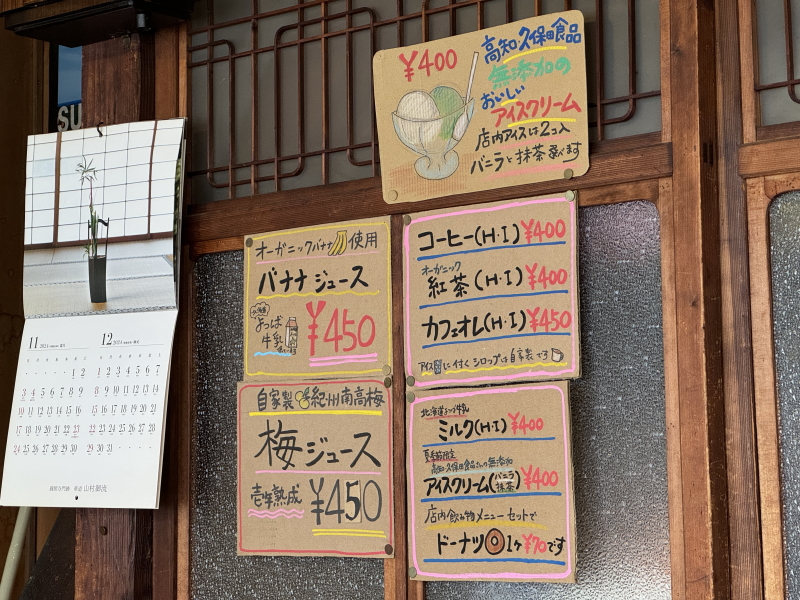 SU
¥400
高知・久保田食品
無添加の
おいしい
アイスクリーム
店内アイスは2コ入
バニラと抹茶選べます
オーガニックバナナ使用
バナナジュース
よつば
牛乳
¥450
コーヒー(H・I)¥400
オーガニック
紅茶(H・I)¥400
カフェオレ(H・I)¥450
アイスに付くシロップは自家製です
自家製 紀州南高梅
梅ジュース
壱年熟成 ¥450
北海道よつば牛乳
ミルク(H・I)¥400
夏季節限定
高知・久保田食品さんの無添加
アイスクリーム(バニラ 抹茶)¥400
店内飲み物メニューセットで
ドーナツ 1ケ ¥70です
11 2024
12 2024
1 2
3 4 5 6 7 8 9
10 11 12 13 14 15 16
17 18 19 20 21 22 23
24 25 26 27 28 29 30
1 2 3 4 5 6 7
8 9 10 11 12 13 14
15 16 17 18 19 20 21
22 23 24 25 26 27 28
29 30 31
山村御流